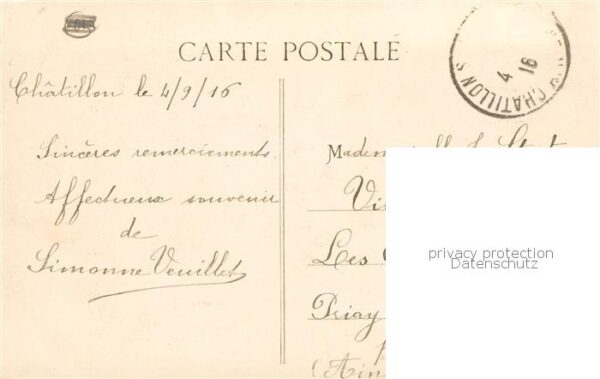 CARTE POSTALE
CHATILLON S
4
16
Châtillon le 4/9/16
Sincères remerciements
Affectueux souvenir
de
Simonne Veuillet
Les
Priay
(Ain
privacy protection
Datenschutz